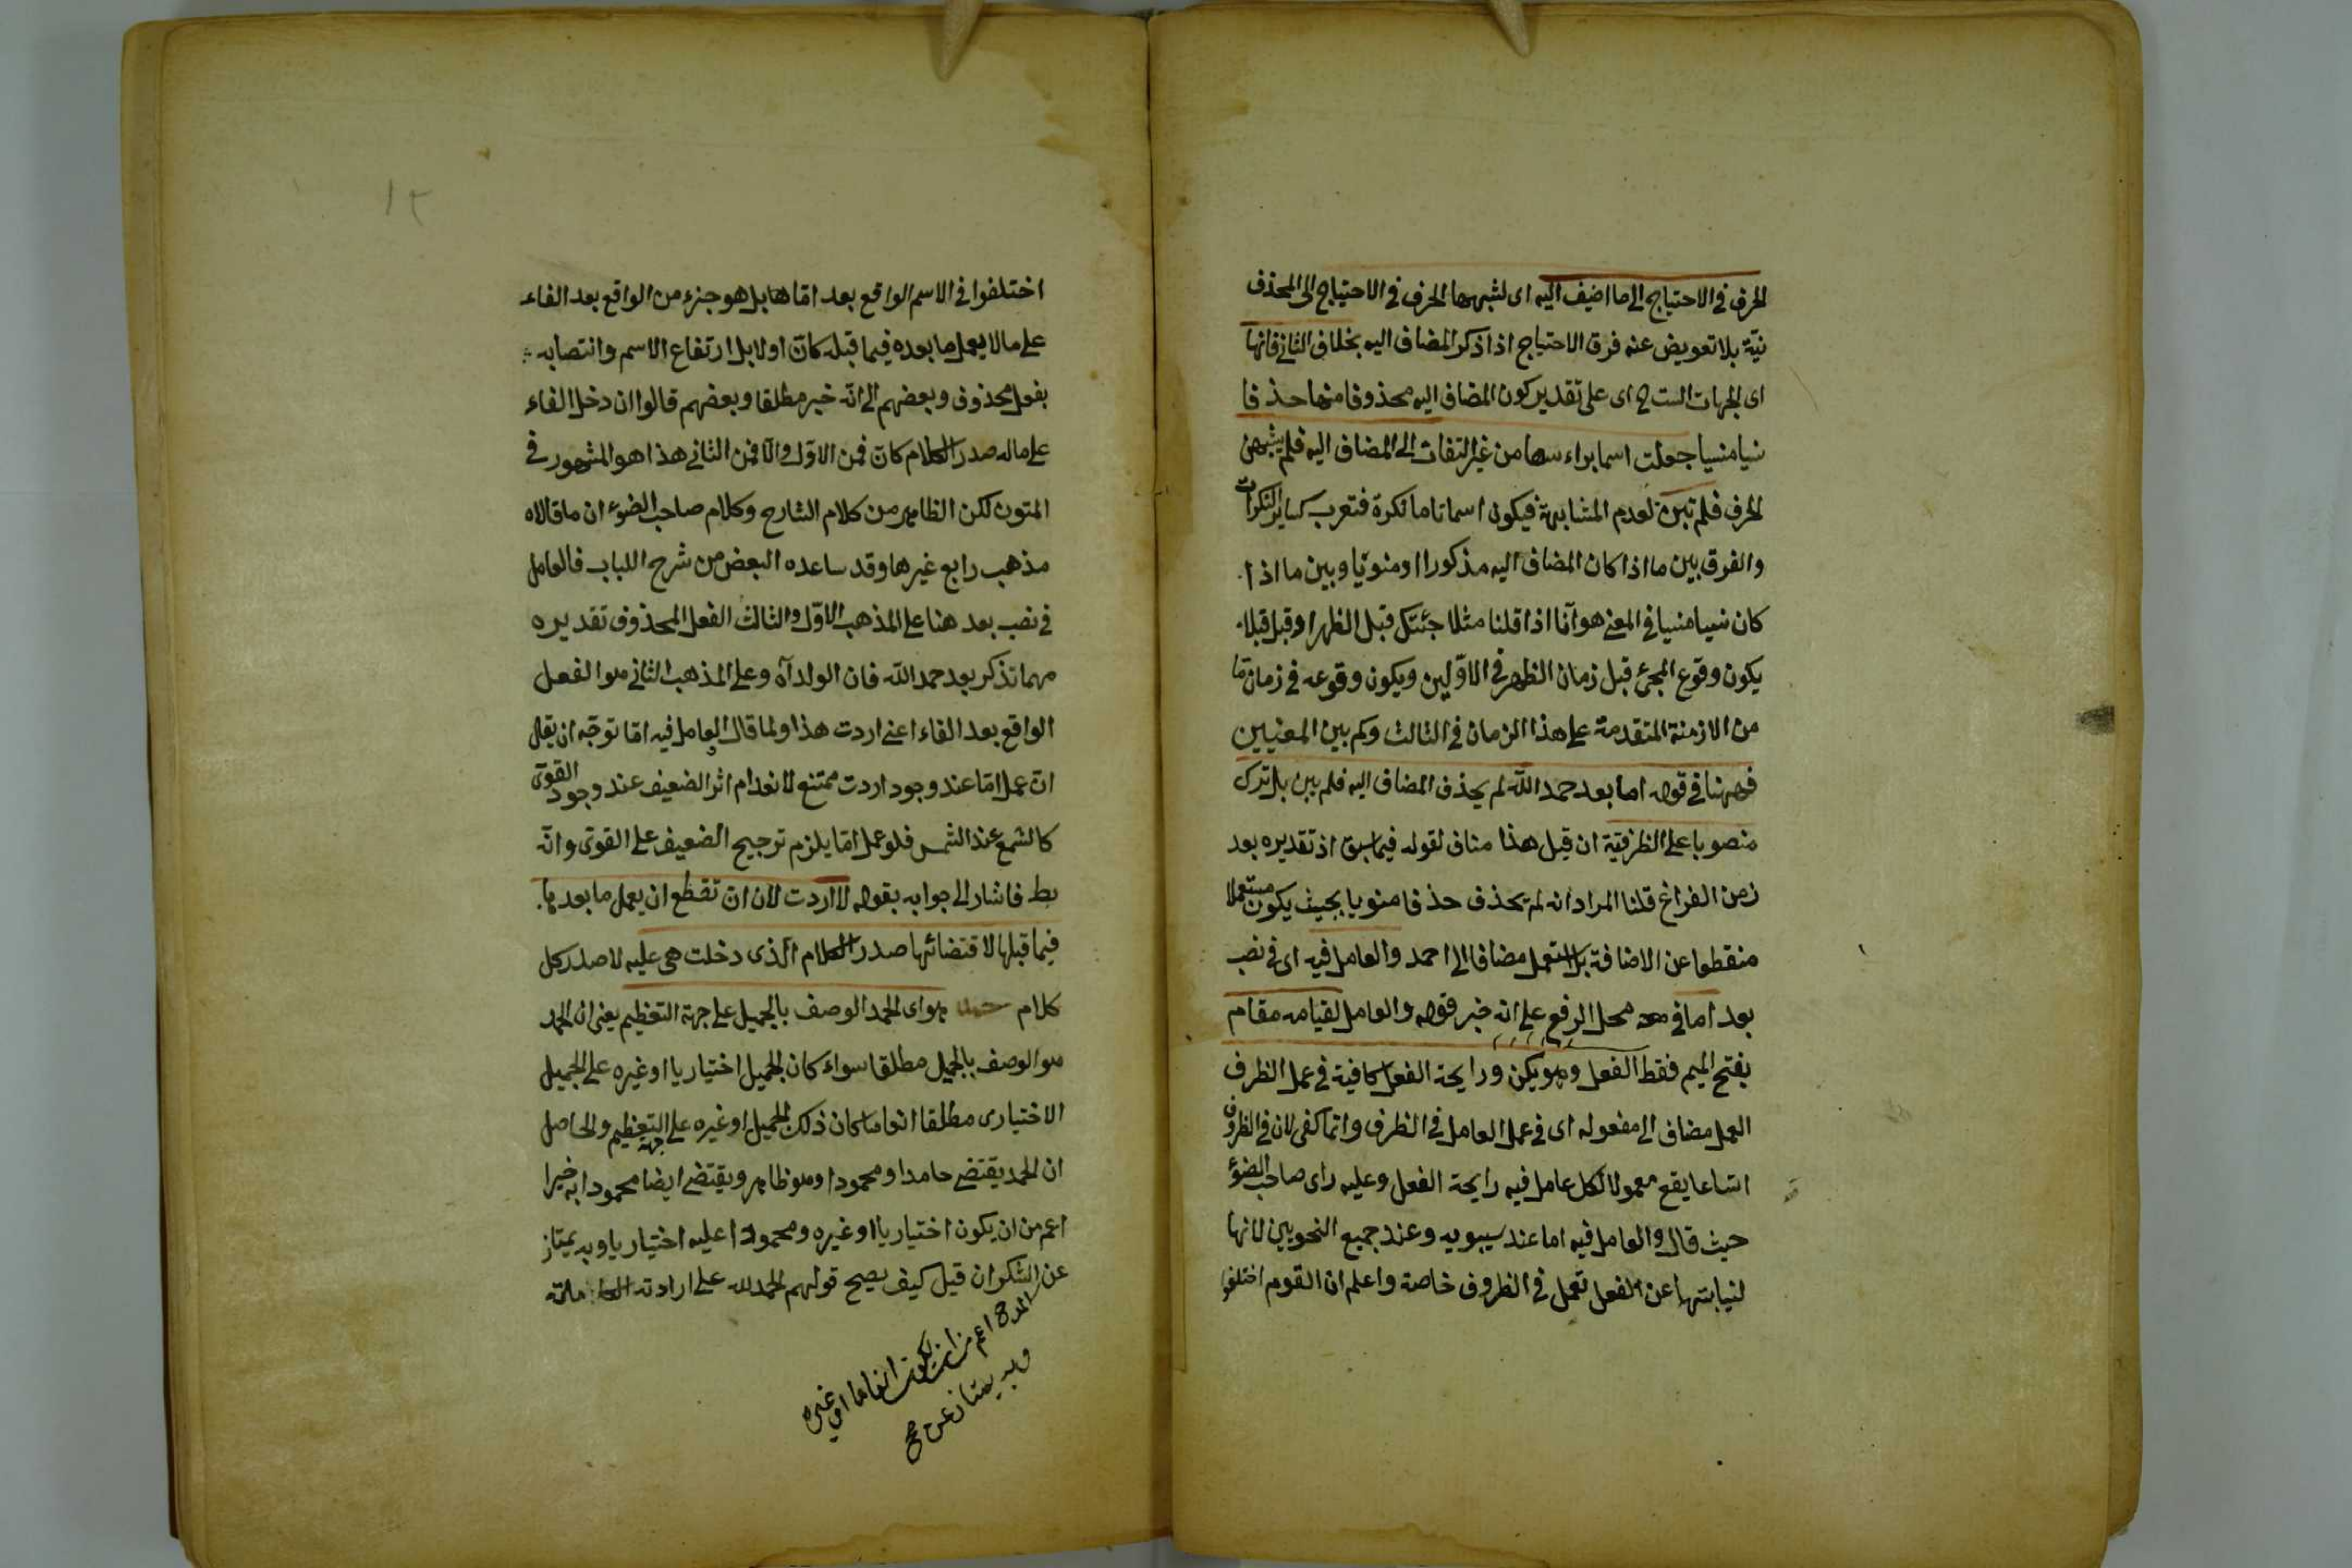 الحرف فى الاحتياج الى ما اضيف اليه اى لشبهها الحرف فى الاحتياج الى المحذوف
نية بلا تعويض عنه فرق الاحتياج اذا ذكر المضاف اليه بخلاف الثانى فانها
اى الجهات الست ح اى على تقدير كون المضاف اليه محذوفا منها حذفا
نسيا منسيا جعلت اسما براءسها من غير التفات الى المضاف اليه فلم يشبهن
الحرف فلم تبن لعدم المشابهة فيكون اسما تاما نكرة فتعرب كساير النكرات
والفرق بين ما اذا كان المضاف اليه مذكورا او منويا وبين ما اذا
كان نسيا منسيا فى المعنى هو انا اذا قلنا مثلا جئتك قبل الظهر او قبل قبلا
يكون وقوع المجئ قبل زمان الظهر فى الاولين ويكون وقوعه فى زمان ما
من الازمنة المتقدمة على هذا الزمان فى الثالث وكم بين المعنيين
فههنا فى قوله اما بعد حمد الله لم يحذف المضاف اليه فلم يبن بل ترك
منصوبا على الظرفية ان قيل هذا مناف لقوله فيما سبق اذ تقديره بعد
زمن الفراغ قلنا المراد انه لم يحذف حذفا منويا بحيث يكون مستعملا
منقطعا عن الاضافة بل استعمل مضافا الى احمد والعامل فيه اى فى نصب
بعد اما فى محل الرفع على انه خبر قوله والعامل لقيامه مقام
بفتح الميم فقط الفعل وهو يكن ورايحة الفعل كافية فى عمل الظرف
العمل مضاف الى مفعوله اى فى عمل العامل فى الظرف وانما كفى لان فى الظروف
اتساعا يقع معمولا لكل عامل فيه رايحة الفعل وعليه راى صاحب الضوء
حيث قال والعامل فيه اما عند سيبويه وعند جميع النحويين لانها
لنيابتها عن الفعل تعمل فى الظروف خاصة واعلم ان القوم اختلفوا
١٢
اختلفوا فى الاسم الواقع بعد اما ها بل هو جزء من الواقع بعد الفاء
على ما لا يعمل ما بعده فيما قبله كان اولا بل ارتفاع الاسم وانتصابه
بفعل محذوف وبعضهم الى انه خبر مطلقا وبعضهم قالوا ان دخل الفاء
على ماله صدر الكلام كان فمن الاول والا فمن الثانى هذا هو المشهور فى
المتون لكن الظاهر من كلام الشارح وكلام صاحب الضوء ان ما قالاه
مذهب رابع غيرها وقد ساعده البعض من شرح اللباب فالعامل
فى نصب بعد هنا على المذهب الاول والثالث الفعل المحذوف تقديره
مهما تذكر بعد حمد الله فان الولد اه وعلى المذهب الثانى هو الفعل
الواقع بعد الفاء اعنى اردت هذا ولما قال العامل فيه اما توجه ان يقال
ان عمل اما عند وجود اردت ممتنع لانعدام اثر الضعيف عند وجود القوى
كالشمع عند الشمس فلو عمل اما يلزم ترجيح الضعيف على القوى وانه
بط فاشار الى جوابه بقوله لا اردت لان ان تقطع ان يعمل ما بعدها
فيما قبلها لاقتضائها صدر الكلام الذى دخلت هى عليه لا صدر كل
كلام هو اى الحمد الوصف بالجميل على جهة التعظيم يعنى ان الحمد
هو الوصف بالجميل مطلقا سواء كان الجميل اختياريا او غيره على الجميل
الاختيارى مطلقا انعاما كان ذلك الجميل او غيره على جهة التعظيم والحاصل
ان الحمد يقتضى حامدا ومحمودا وهو ظاهر ويقتضى ايضا محمودا به خيرا
اعم من ان يكون اختياريا او غيره ومحمودا عليه اختياريا وبه يمتاز
عن الشكر ان قيل كيف يصح قولهم الحمد لله على ارادته
المدح اعم من ان يكون انعاما او غيره
وبه يمتاز عن صح